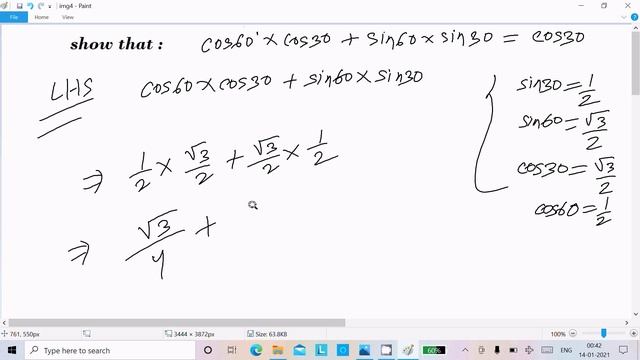 img4 - Paint
File Home View
show that : cos60° × cos30 + sin60 × sin30 = cos30
LHS cos60 × cos30 + sin60 × sin30
⇒ 1/2 × √3/2 + √3/2 × 1/2
⇒ √3/4 +
sin30 = 1/2
sin60 = √3/2
cos30 = √3/2
cos60 = 1/2
761, 550px 3444 × 3872px Size: 63.8KB 100%
Type here to search 60% ENG 00:42 14-01-2021